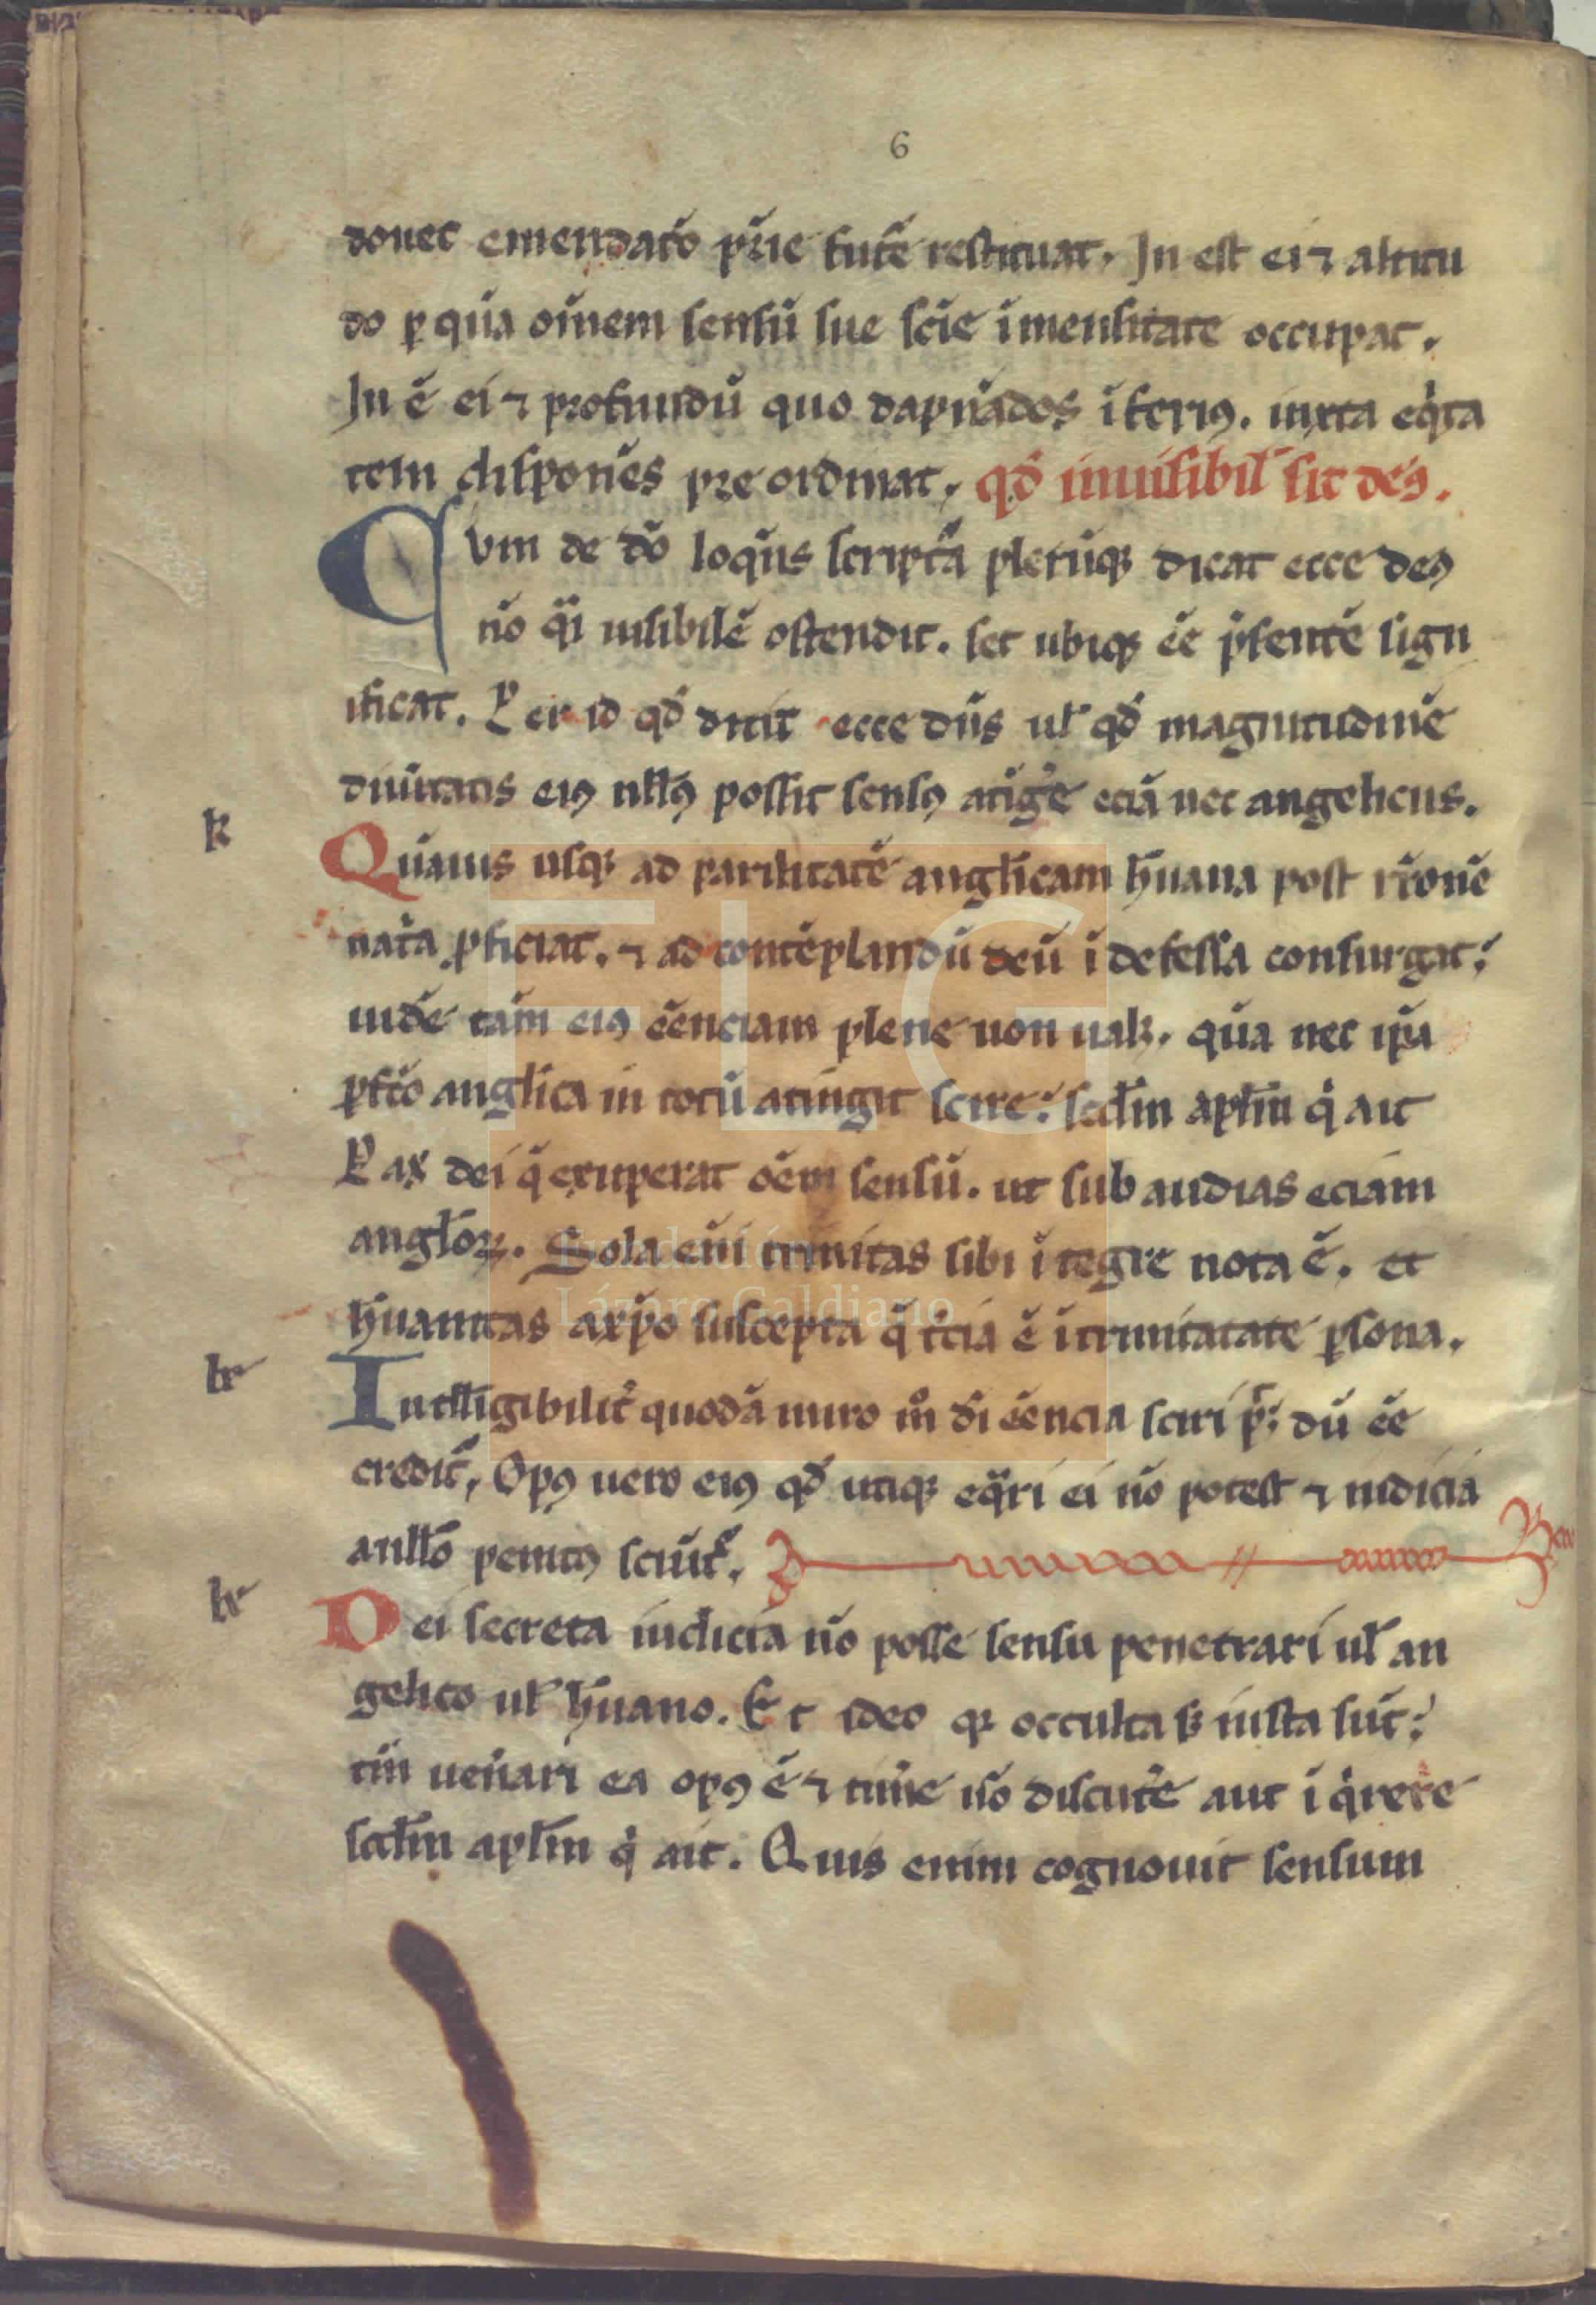 6
donec emendatō pr̄ie tuťe restituat. In est ei ⁊ altitu
do ꝑ quā om̄em sensū sue scīe īmensitate occupat.
In ē ei ⁊ profundū quo dapnādos īferiꝰ. iuxta eqͥta
tem disponēs preordinat. qd̄ inuisibil̄ sit deꝰ.
Cvm de dō loqn̄s script̄a plerūqꝫ dicat ecce deꝰ
nō qͣi uisibilē ostendit. set ubiqꝫ ēe p̄sentē sign
ificat. Per id qd̄ dicit ecce dn̄s ul̄ qd̄ magnitudinē
diuītatis eiꝰ nll̄ꝰ possit sensꝰ atīgēe eciā nec angelicus.
k
Quāuis usqꝫ ad parilitatē angl̄icam hūana post r̄ionē
nat̄a ꝓficiat. ⁊ ad contēplandū deū īdefessa consurgat;
uidē tām eiꝰ ēenciam plene non ualꝫ. quā nec ip̄a
ꝑfc̄o angl̄ica in totū atingit scire; sed̄m apl̄m qͥ ait
Pax dei q̄ exuperat oēm sensū. ut subaudias eciam
angl̄oꝝ. Sola eni trinitas sibi ītegre nota ē. et
hūanitas axp̄o suscepta q̄ t̄cia ē ītrinitatate ꝑsona.
hr
Intell̄igibilit̄ quodā miro m̊ dī ēencia sciri p̄; dū ēe
credit̄. Opꝰ uero eiꝰ qd̄ utiqꝫ eqͣri ei nō potest ⁊ iudicia
anll̄o penitꝰ sciūt̄.
hr
Dei secreta iudicia nō posse sensu penetrari ul̄ an
gelico ul̄ hūano. Et ideo qꝫ occulta sꝫ iusta sūt;
tm̄ uen̄ari ea opꝰ ē ⁊ tim̄e nō discut̄e aut īqͥrere
scd̄m apl̄m qͥ ait. Quis enim cognouit sensum
Fundación
Lázaro Galdiano
FLG